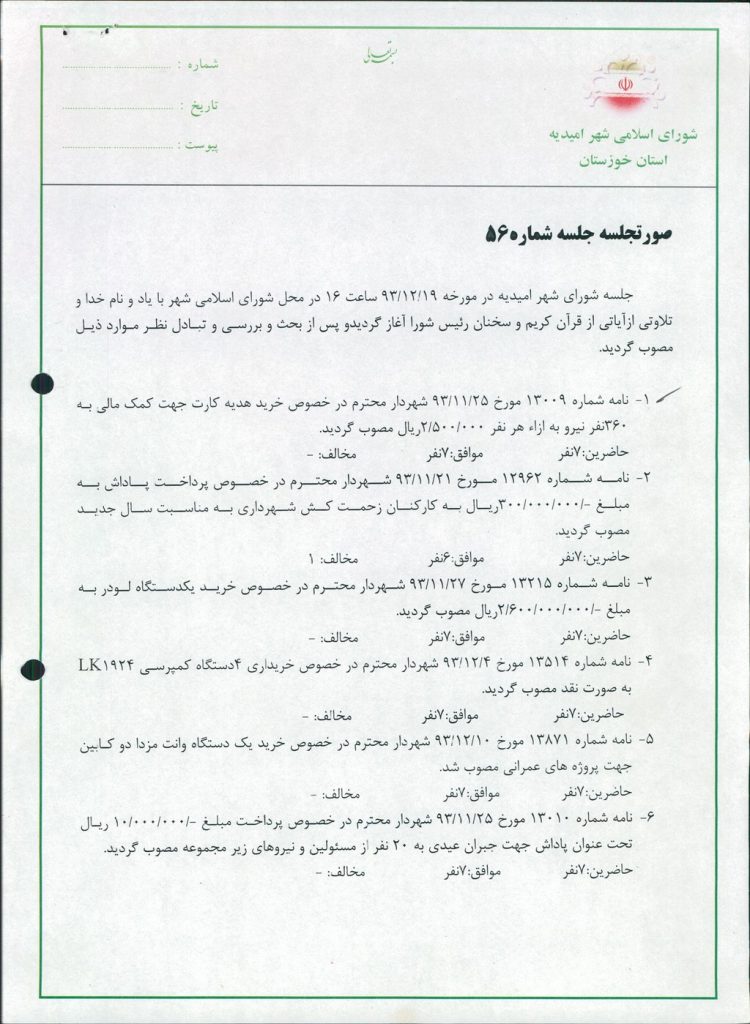 بسمه تعالی
شورای اسلامی شهر امیدیه
استان خوزستان
شماره :
تاریخ :
پیوست :
صورتجلسه جلسه شماره۵۶
جلسه شورای شهر امیدیه در مورخه ۹۳/۱۲/۱۹ ساعت ۱۶ در محل شورای اسلامی شهر با یاد و نام خدا و
تلاوتی ازآیاتی از قرآن کریم و سخنان رئیس شورا آغاز گردیدو پس از بحث و بررسی و تبادل نظر موارد ذیل
مصوب گردید.
۱- نامه شماره ۱۳۰۰۹ مورخ ۹۳/۱۱/۲۵ شهردار محترم در خصوص خرید هدیه کارت جهت کمک مالی به
۳۶۰نفر نیرو به ازاء هر نفر ۲/۵۰۰/۰۰۰ریال مصوب گردید.
حاضرین:۷نفر موافق:۷نفر مخالف: -
۲- نامه شماره ۱۲۹۶۲ مورخ ۹۳/۱۱/۲۱ شهردار محترم در خصوص پرداخت پاداش به
مبلغ -/۳۰۰/۰۰۰/۰۰۰ریال به کارکنان زحمت کش شهرداری به مناسبت سال جدید
مصوب گردید.
حاضرین:۷نفر موافق:۶نفر مخالف: ۱
۳- نامه شماره ۱۳۲۱۵ مورخ ۹۳/۱۱/۲۷ شهردار محترم در خصوص خرید یکدستگاه لودر به
مبلغ -/۲/۶۰۰/۰۰۰/۰۰۰ریال مصوب گردید.
حاضرین:۷نفر موافق:۷نفر مخالف: -
۴- نامه شماره ۱۳۵۱۴ مورخ ۹۳/۱۲/۴ شهردار محترم در خصوص خریداری ۴دستگاه کمپرسی LK۱۹۲۴
به صورت نقد مصوب گردید.
حاضرین:۷نفر موافق:۷نفر مخالف: -
۵- نامه شماره ۱۳۸۷۱ مورخ ۹۳/۱۲/۱۰ شهردار محترم در خصوص خرید یک دستگاه وانت مزدا دو کابین
جهت پروژه های عمرانی مصوب شد.
حاضرین:۷نفر موافق:۷نفر مخالف: -
۶- نامه شماره ۱۳۰۱۰ مورخ ۹۳/۱۱/۲۵ شهردار محترم در خصوص پرداخت مبلغ -/۱۰/۰۰۰/۰۰۰ ریال
تحت عنوان پاداش جهت جبران عیدی به ۲۰ نفر از مسئولین و نیروهای زیر مجموعه مصوب گردید.
حاضرین:۷نفر موافق:۷نفر مخالف: -